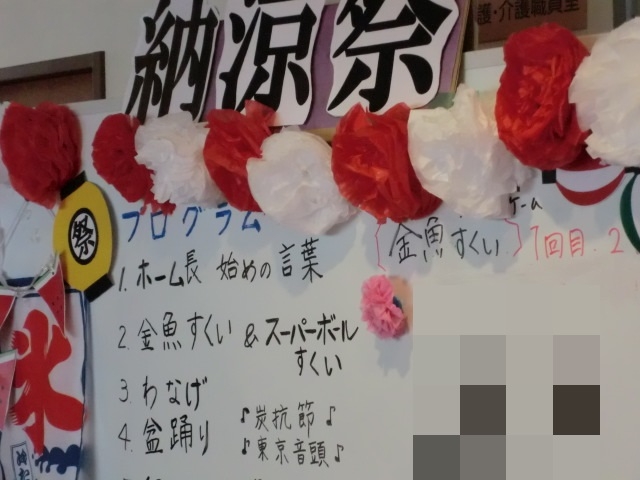 納涼祭
護・介護職員室
祭
プログラム
1. ホーム長 始めの言葉
2. 金魚すくい & スーパーボール
すくい
3. わなげ
4. 盆踊り ♪炭抗節♪
♪東京音頭♪
ゲーム
(金魚すくい) 1回目. 2
氷